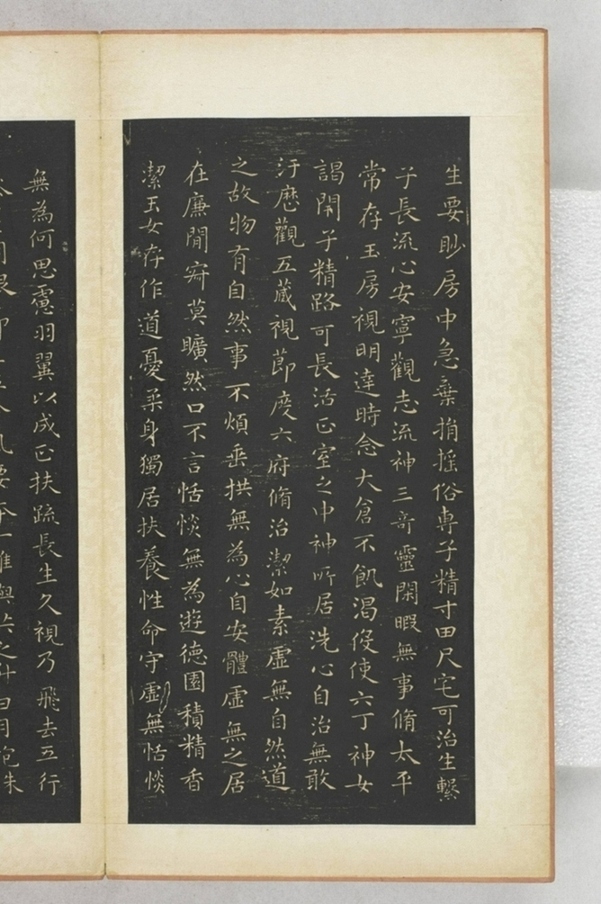 生要眇房中急棄捐搖俗專子精寸田尺宅可治生繫
子長流心安寧觀志流神三奇靈閑暇無事脩太平
常存玉房視明達時念大倉不飢渴役使六丁神女
謁閉子精路可長活正室之中神所居洗心自治無敢
汙歷觀五藏視節度六府脩治潔如素虛無自然道
之故物有自然事不煩垂拱無為心自安體虛無之居
在廉間寂莫曠然口不言恬惔無為遊德園積精香
潔玉女存作道憂柔身獨居扶養性命守虛無恬惔
無為何思慮羽翼以成正扶疏長生久視乃飛去五行